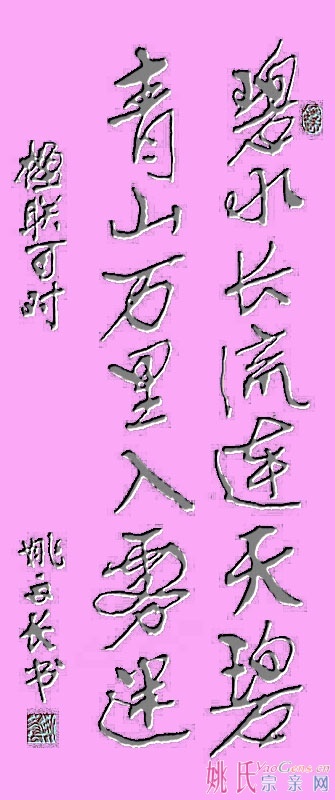 碧水长流连天碧
青山万里入雾迷
楹联
姚长书
姚氏宗亲网
YaoGens.cn